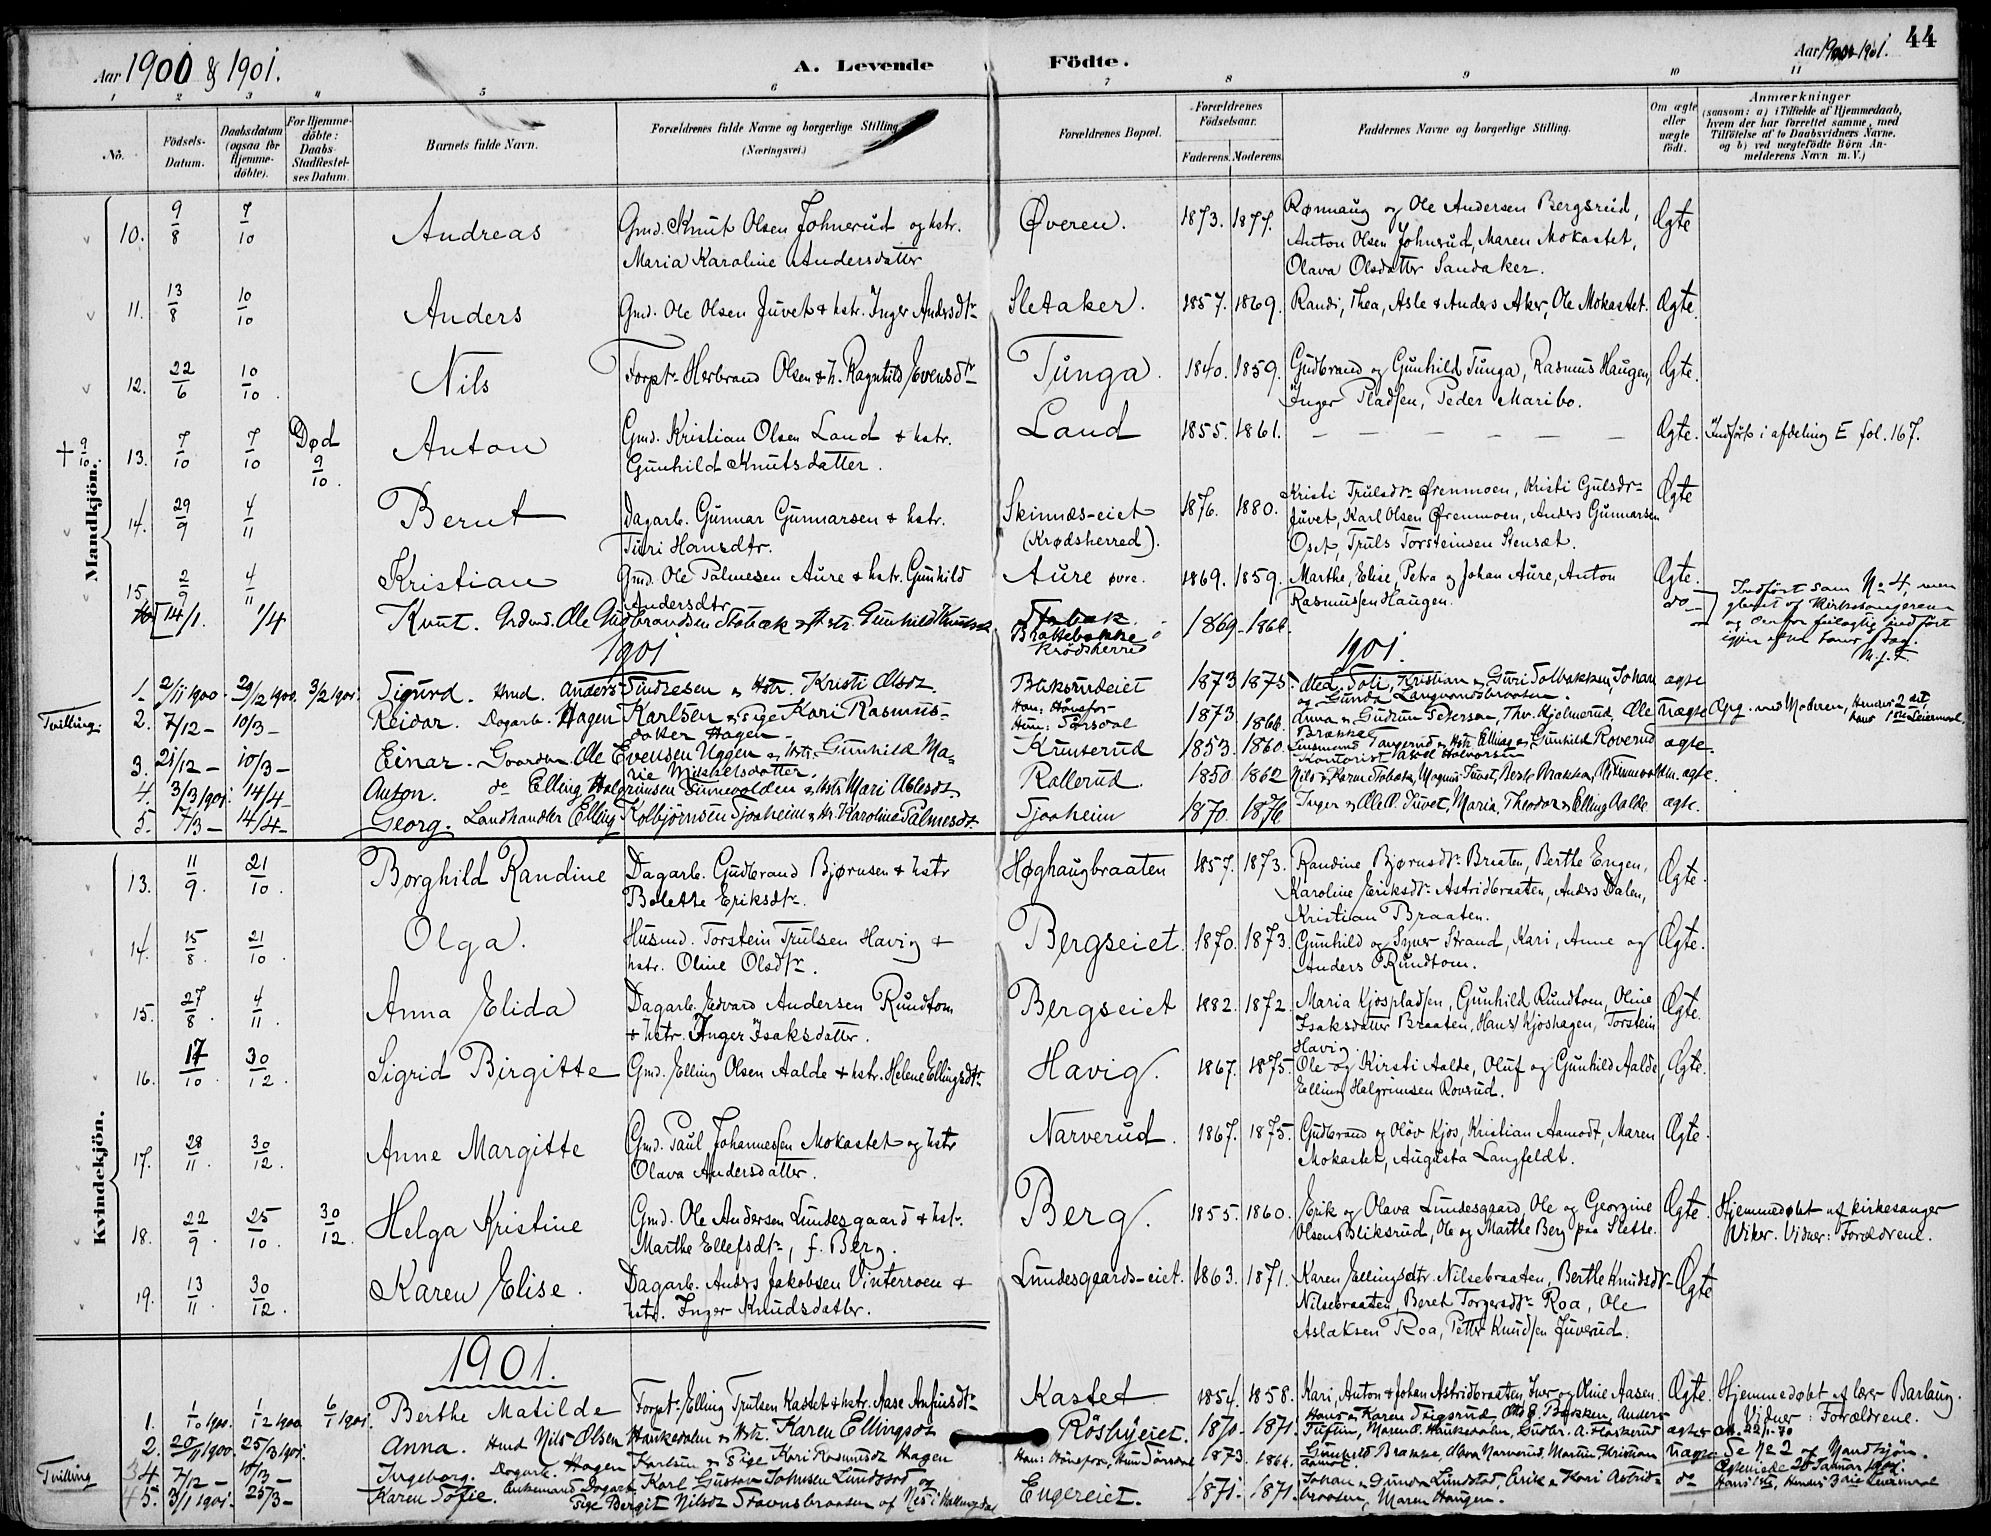 Aar 1900 & 1901.
A. Levende Födte.
Aar 1900 1901.
44
1 2 3 4 5 6 7 8 9 10 11
No.
Födsels-Datum.
Daabsdatum (ogsaa for Hjemme-döbte).
For Hjemme-döbte: Daabs-Stadfæstel-ses Datum.
Barnets fulde Navn.
Forældrenes fulde Navne og borgerlige Stilling (Næringsvei.)
Forældrenes Bopæl.
Forældrenes Födselsaar.
Faderens. Moderens.
Faddernes Navne og borgerlige Stilling.
Om ægte eller uægte födt.
Anmærkninger
(saasom: a) i Tilfælde af Hjemmedaab,
hvem der har forrettet samme, med
Tilföielse af to Daabsvidners Navne,
og b) ved uægtefödte Börn An-
melderens Navn m. V.)
Mandkjön.
10. 9/8 7/10 Andreas Gmd. Knut Olsen Johnerud og hstr. Øveren. 1873. 1877. Rønnaug og Ole Andersen Bergsrud, Ægte
Maria Karoline Andersdatter Anton Olsen Johnrud, Maren Mokastet,
Olava Olsdatter Sandaker.
11. 13/8 10/10 Anders Gmd. Ole Olsen Juvet & hstr. Inger Andersdtr. Sletaker. 1857. 1869. Randi, Thea, Asle & Anders Aker, Ole Mokastet. Ægte.
12. 22/6 10/10 Nils Forptr. Herbrand Olsen & h. Ragnhild Evensdtr. Tunga. 1840. 1859. Gudbrand og Gunhild Tunga, Rasmus Haugen, Ægte.
Inger Pladsen, Peder Maribo.
+ 9/10 13. 7/10 7/10 Død 9/10. Anton Gmd. Kristian Olsen Land & hstr. Land 1855. 1861. — — — — — — Ægte. Indført i afdeling E fol. 167.
Gunhild Knutsdatter.
14. 29/9 4/11 Bernt Dagarb. Gunnar Gunnarsen & hstr. Skinnes-eiet 1876. 1880. Kristi Trulsdtr. Ørenmoen, Kristi Gulsdtr. Ægte
Turi Hansdtr. (Krødsherred). Juvet, Karl Olsen Ørenmoen, Anders Gunnarsen
Oset, Truls Torsteinsen Stensæt.
15. 2/9 4/11 Kristian Gmd. Ole Palmesen Aure & hstr. Gunhild Aure øvre. 1869. 1859. Marthe, Elise, Petra og Johan Aure, Anton Ægte.
Andersdtr. Rasmussen Haugen.
14/1. 1/4 Knut. Grdmd. Ole Gudbrandsen Stobæk & Hstr. Gunhild Knutsd. Brattebakke i Krødsherred 1869 - 1864. do Indført som No 4, men
glemt af Kirkesangeren
og derfor feilagtig indført
1901 1901.
1. 2/11 1900. 29/12 1900. 3/2 1901. Sigurd. Hmd. Anders Hstr. Kristi Olsdt. Buksrudeiet 1873 1875. Johan ægte
Tvilling. 2. 7/12 – 10/3 – Reidar. Dagarb. Hagen Karlsen & Pige Kari Rasmus- Han: Hønefos. 1873 1864. Anna & Gudrun Pedersen, Thv. Hjelmerud, Ole Uægte Opg. ved Moderen, Hendes 2det,
datter Hagen – Hun: Sørsdal Brække hans 1ste Leiermaal.
3. 21/12 – 10/3 – Einar. Gaardm. Ole Evensen Uggen & Hstr. Gunhild Ma- Knuterud 1853. 1860. Hstr. Elling & Gunhild Roverud ægte.
rie Mikkelsdatter.
4. 3/3 1901. 14/4 – Anton. do Elling Halgrimsen Finnevolden & Hstr. Mari Ablesdt. Rallerud. 1850 1862 ægte.
5. 7/3 – 14/4 – Georg. Landhandler Elling Kolbjørnsen Tjosheim & Hr. Karoline Palmesdt. Tjosheim 1870. 1876. Inger & Ole P. Juvet, Maria, Theodor & Elling Aalde. ægte.
Kvindekjön.
13. 11/9. 21/10. Borghild Randine Dagarb. Gudbrand Bjørnsen & hstr Høghaugbraaten 1857. 1873. Randine Bjørnsdtr. Braten, Berthe Engen, Ægte.
Bolette Eriksdtr. Karoline Eriksdtr. Astridbraaten, Anders Dalen,
Kristian Braaten.
14. 15/8. 21/10. Olga. Husmd. Torstein Trulsen Havig & Bergseiet. 1870. 1873. Gunhild og Syver Strand, Kari, Anne og Ægte.
hstr. Oline Olsdtr. Anders Rundtom.
15. 27/8. 4/11. Anna Elida Dagarb. Edvard Andersen Rundtom Bergseiet 1882. 1872. Maria Kjospladsen, Gunhild Rundtom, Oline Ægte.
& hstr. Inger Isaksdatter. Isaksdatter Braaten, Hans Kjoshagen, Torstein
Havig.
16. 17/10. 30/12. Sigrid Birgitte Gmd. Elling Olsen Aalde & hstr. Helene Ellingsdtr. Havig. 1867. 1875. Ole og Kirsti Aalde, Oluf og Gunhild Aalde, Ægte.
Elling Halgrimsen Rovrud.
17. 28/11. 30/12. Anne Margitte Gmd. Paul Johannessen Mokastet og hstr Narverud. 1867. 1875. Gudbrand og Oløv Kjos, Kristian Aamodt, Maren Ægte.
Olava Andersdatter. Mokastet, Augusta Langfeldt.
18. 22/9. 25/10. 30/12. Helga Kristine Gmd. Ole Andersen Lundesgaard & hst. Berg. 1855. 1860. Erik og Olava Lundesgaard, Ole og Georgine Ægte. Hjemmedøbt af kirkesanger
Marthe Ellefsdtr., f. Berg. Olsen Bliksrud, Ole og Marthe Berg paa Slette. Viker. Vidner: Forældrene.
19. 13/11. 30/12. Karen Elise. Dagarb. Anders Jakobsen Vinterroen & Lundesgaards-eiet. 1863. 1871. Karen Ellingsdtr. Nilsebraaten, Berthe Knudsdtr. Ægte
hstr. Inger Knudsdatter. Nilsebraaten, Beret Torgersdtr. Roa, Ole
Aslaksen Roa, Petter Knudsen Juverud.
1901.
1. 1/10 1900. 1/12 1900 6/1 1901. Berthe Matilde Forpt. Elling Trulsen Kastet & hstr. Aase Anfinsdtr. Kastet 1854. 1858. Kari, Anton & Johan Astridbraaten, Iver og Oline Aasen. Ægte. Hjemmedøbt af lærer Barlaug.
Vidner: Forældrene.
2. 20/11 1900. 25/3 1901. Anna. Hmd Nils Olsen Haukedalen & Hstr. Karen Ellingsdt Røsbyeiet. 1870. 1871. Hans & Karen Tiigsrud, Anders ægte
Tvilling 4. 7/12 – 10/3 – Ingeborg. Dagarb. Hagen Karlsen & Pige Kari Rasmusdt Hagen Han: Hønefos, Hun Sørsdal 1873. 1864. Uægte Se No 2 af Mandkjøn.
5. 3/1 1901. 25/3 – Karen Tofie. Enkemand Dagarb. Karl Gustav Johnsen Lundstad og Engereiet. 1871. 1871. Johan & Gunda Lundstad, Erik & Kari Astrid- do
Pige Bergit Nilsdt Stavnsbraaten af Nes i Hallingdal braaten, Maren Haugen. Hans 1ste, Hendes 3die Leiermaal